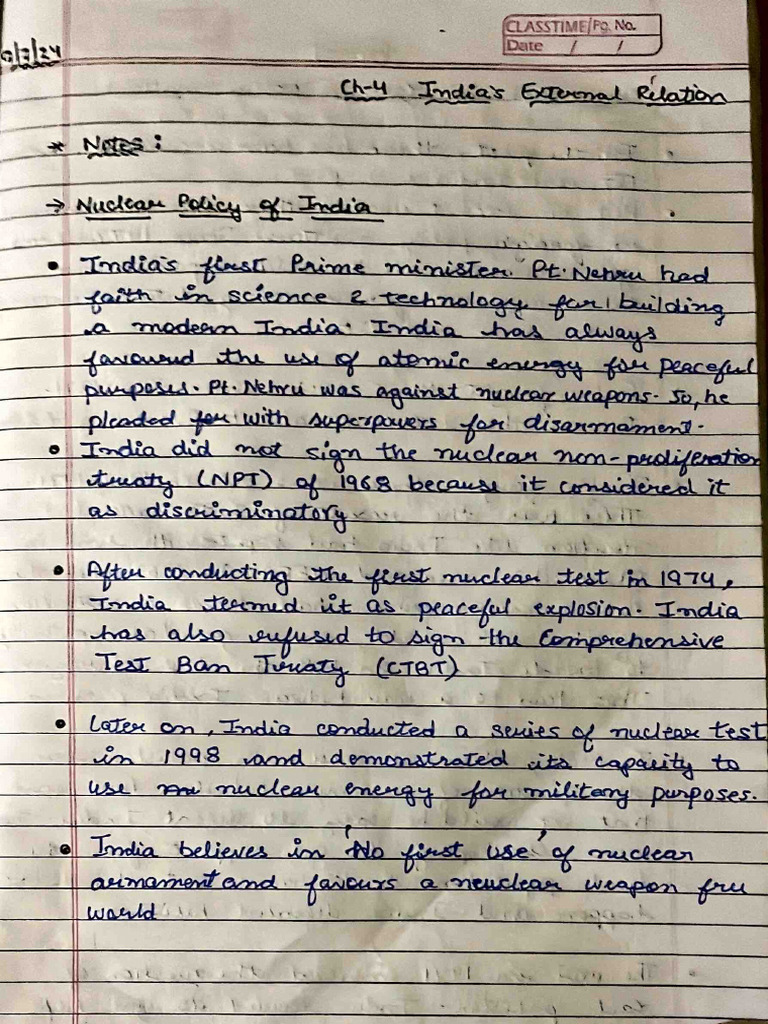 CLASSTIME/Pg. No.
Date / /
/7/24
Ch-4 India's External Relation
* Notes :
→ Nuclear Policy of India
• India's first Prime minister. Pt. Nehru had
faith in science & technology for building
a modern India. India has always
favoured the use of atomic energy for peaceful
purposes. Pt. Nehru was against nuclear weapons. So, he
pleaded for with superpowers for disarmament.
• India did not sign the nuclear non-proliferation
treaty (NPT) of 1968 because it considered it
as discriminatory
• After conducting the first nuclear test in 1974,
India termed it as peaceful explosion. India
has also refused to sign the Comprehensive
Test Ban Treaty (CTBT)
• Later on, India conducted a series of nuclear test
in 1998 and demonstrated its capacity to
use nuclear energy for military purposes.
• India believes in 'No first use' of nuclear
armament and favours a neuclear weapon free
world